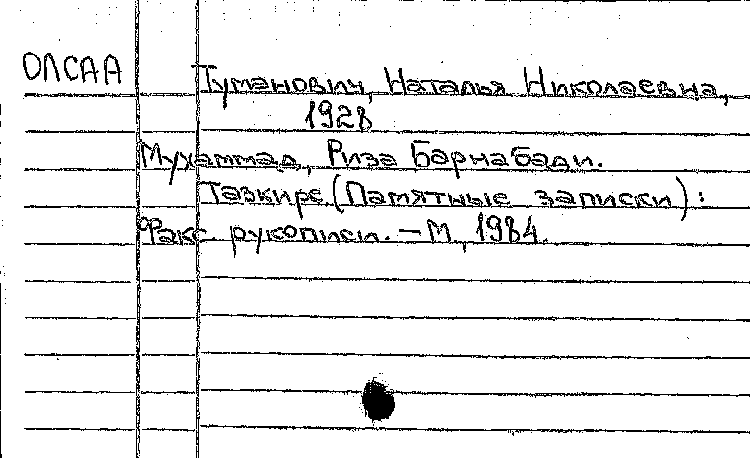 ОЛСАА
Туманович, Наталья Николаевна,
1928
Мухаммад, Риза Барнабади.
Тазкире (Памятные записки) :
Факс рукописи. – М., 1984.